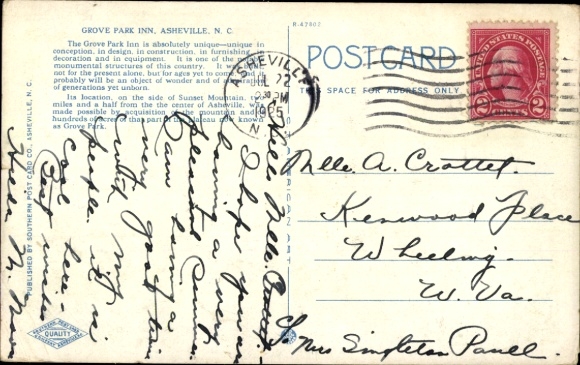 GROVE PARK INN, ASHEVILLE, N. C.
The Grove Park Inn is absolutely unique—unique in
conception, in design, in construction, in furnishing, in
decoration and in equipment. It is one of the most
monumental structures of this country. It was built
not for the present alone, but for ages yet to come, and it
probably will be an object of wonder and of admiration
of generations yet unborn.
In location, on the side of Sunset Mountain, two
miles and a half from the center of Asheville, was
made possible by acquisition of the mountain and
hundreds of acres of that part of the plateau now known
as Grove Park.
PUBLISHED BY SOUTHERN POST CARD CO., ASHEVILLE, N. C.
QUALITY
R-42907
POSTCARD
THIS SPACE FOR ADDRESS ONLY
ASHEVILLE
22
PM
1925
N.
UNITED STATES POSTAGE
2 CENTS 2
Mlle. A. Crottet.
Kenwood Place
Wheeling.
W. Va.
c/o Mrs Singleton Panell.
Dear Mlle. Crottet-
I hope you are
having a very
pleasant Summer.
Am having a
very good time
with my
people. it is
cool here.
Best wishes